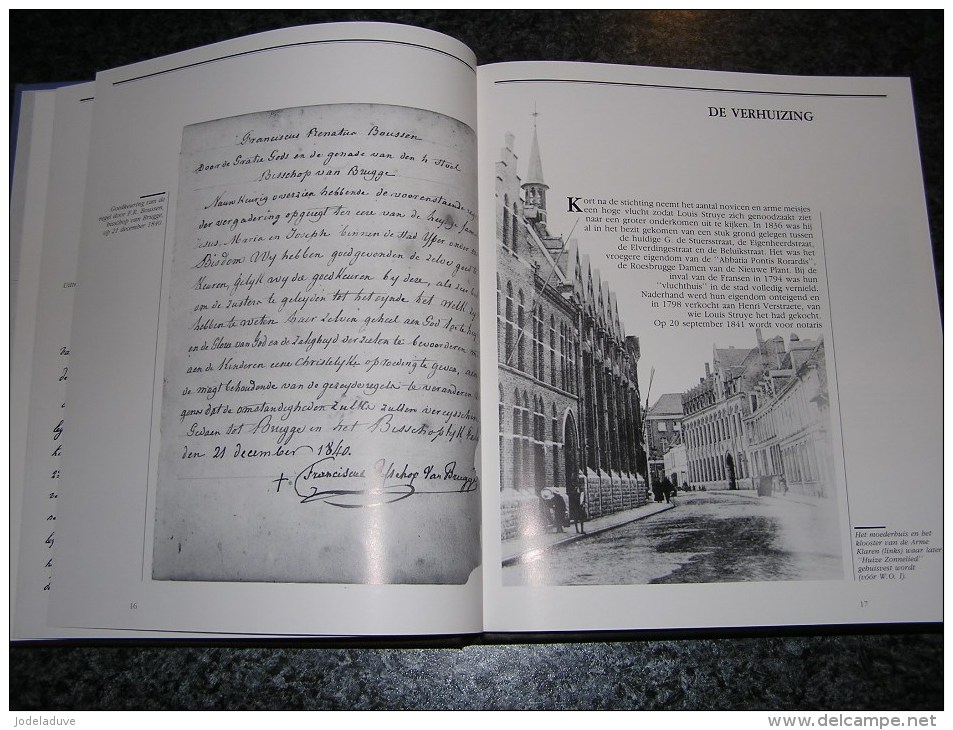 Goedkeuring van de
regel door F.R. Boussen,
bisschop van Brugge,
op 21 december 1840.
Franciscus Renatus Boussen
Door de Gratie Gods en de genade van den H Stoel
Bisschop van Brugge
Nauwkeurig overzien hebbende de voorenstaende
der vergadering opgeregt ter eere van de
Jesus, Maria en Joseph binnen de stad Yper onder
Bisdom Wy hebben goedgevonden de zelve goed te
Keuren, gelyk wy die goedkeuren by deze, als zeer
om de zusters te geleyden tot het eynde het welk zy
hebben te weten haer zelven geheel aen God
en de Glorie van God en de zaligheyd der zielen te bevoorderen
aen de Kinderen eene Christelyke opvoeding te geven,
de magt behoudende van de gezeyde regels te veranderen
de omstandigheden zulks zullen vereysschen
Gedaen tot Brugge in het Bisschoplyk
den 21 december 1840.
+ Franciscus Bisschop Van Brugge
16
DE VERHUIZING
Kort na de stichting neemt het aantal novicen en arme meisjes
een hoge vlucht zodat Louis Struye zich genoodzaakt ziet
naar een groter onderkomen uit te kijken. In 1836 was hij
al in het bezit gekomen van een stuk grond gelegen tussen
de huidige G. de Stuersstraat, de Eigenheerdstraat,
de Elverdingestraat en de Beluikstraat. Het was het
vroegere eigendom van de "Abbatia Pontis Rorardis",
de Roesbrugge Damen van de Nieuwe Plant. Bij de
inval van de Fransen in 1794 was hun
"vluchthuis" in de stad volledig vernield.
Naderhand werd hun eigendom onteigend en
in 1798 verkocht aan Henri Verstraete, van
wie Louis Struye het had gekocht.
Op 20 september 1841 wordt voor notaris
Het moederhuis en het
klooster van de Arme
Klaren (links) waar later
"Huize Zonnelied"
gehuisvest wordt
(vóór W.O. I).
17
jodeladuve
www.delcampe.net